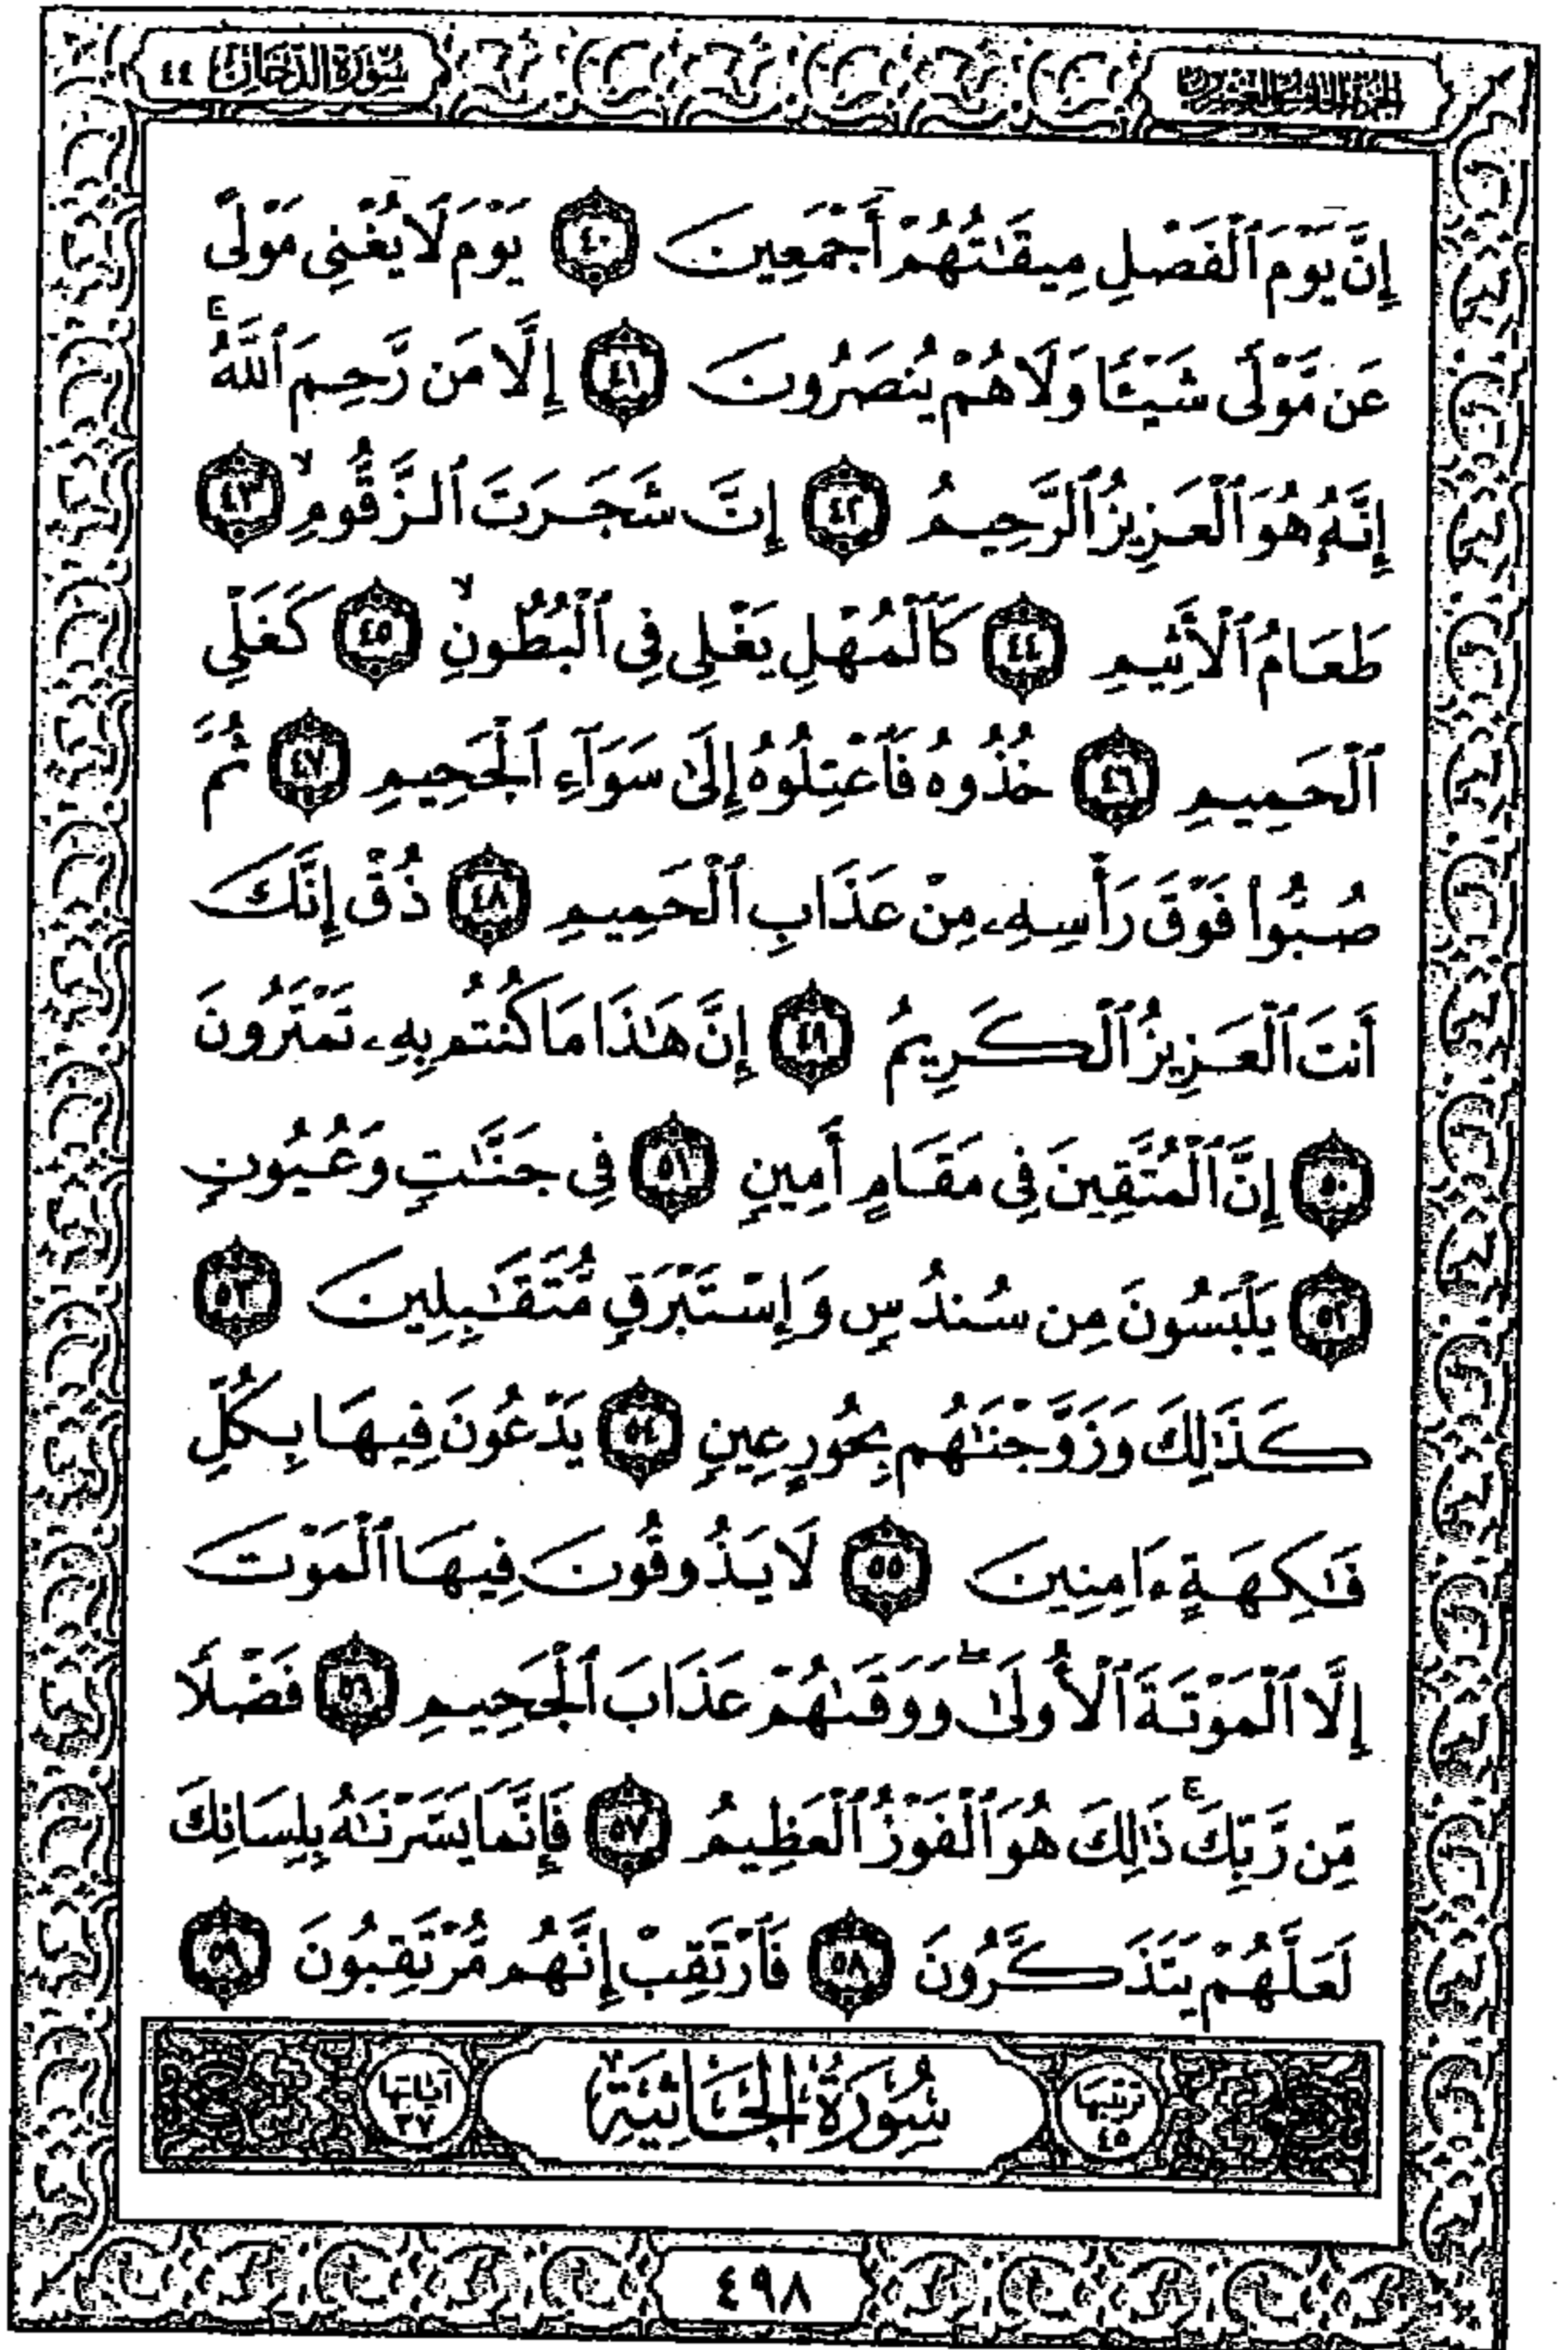 الجزء الخامس والعشرون
سورة الدخان ٤٤
إِنَّ يَوْمَ ٱلْفَصْلِ مِيقَٰتُهُمْ أَجْمَعِينَ ٤٠ يَوْمَ لَا يُغْنِى مَوْلًى
عَن مَّوْلًى شَيْـًٔا وَلَا هُمْ يُنصَرُونَ ٤١ إِلَّا مَن رَّحِمَ ٱللَّهُ ۚ
إِنَّهُۥ هُوَ ٱلْعَزِيزُ ٱلرَّحِيمُ ٤٢ إِنَّ شَجَرَتَ ٱلزَّقُّومِ ۙ ٤٣
طَعَامُ ٱلْأَثِيمِ ٤٤ كَٱلْمُهْلِ يَغْلِى فِى ٱلْبُطُونِ ۙ ٤٥ كَغَلْىِ
ٱلْحَمِيمِ ٤٦ خُذُوهُ فَٱعْتِلُوهُ إِلَىٰ سَوَآءِ ٱلْجَحِيمِ ٤٧ ثُمَّ
صُبُّوا۟ فَوْقَ رَأْسِهِۦ مِنْ عَذَابِ ٱلْحَمِيمِ ٤٨ ذُقْ إِنَّكَ
أَنتَ ٱلْعَزِيزُ ٱلْكَرِيمُ ٤٩ إِنَّ هَٰذَا مَا كُنتُم بِهِۦ تَمْتَرُونَ
٥٠ إِنَّ ٱلْمُتَّقِينَ فِى مَقَامٍ أَمِينٍ ٥١ فِى جَنَّٰتٍ وَعُيُونٍ
٥٢ يَلْبَسُونَ مِن سُندُسٍ وَإِسْتَبْرَقٍ مُّتَقَٰبِلِينَ ٥٣
كَذَٰلِكَ وَزَوَّجْنَٰهُم بِحُورٍ عِينٍ ٥٤ يَدْعُونَ فِيهَا بِكُلِّ
فَٰكِهَةٍ ءَامِنِينَ ٥٥ لَا يَذُوقُونَ فِيهَا ٱلْمَوْتَ
إِلَّا ٱلْمَوْتَةَ ٱلْأُولَىٰ ۖ وَوَقَىٰهُمْ عَذَابَ ٱلْجَحِيمِ ٥٦ فَضْلًا
مِّن رَّبِّكَ ۚ ذَٰلِكَ هُوَ ٱلْفَوْزُ ٱلْعَظِيمُ ٥٧ فَإِنَّمَا يَسَّرْنَٰهُ بِلِسَانِكَ
لَعَلَّهُمْ يَتَذَكَّرُونَ ٥٨ فَٱرْتَقِبْ إِنَّهُم مُّرْتَقِبُونَ ٥٩
ترتيبها ٤٥ سُورَةُ الجَاثِيَةِ آياتها ٣٧
٤٩٨